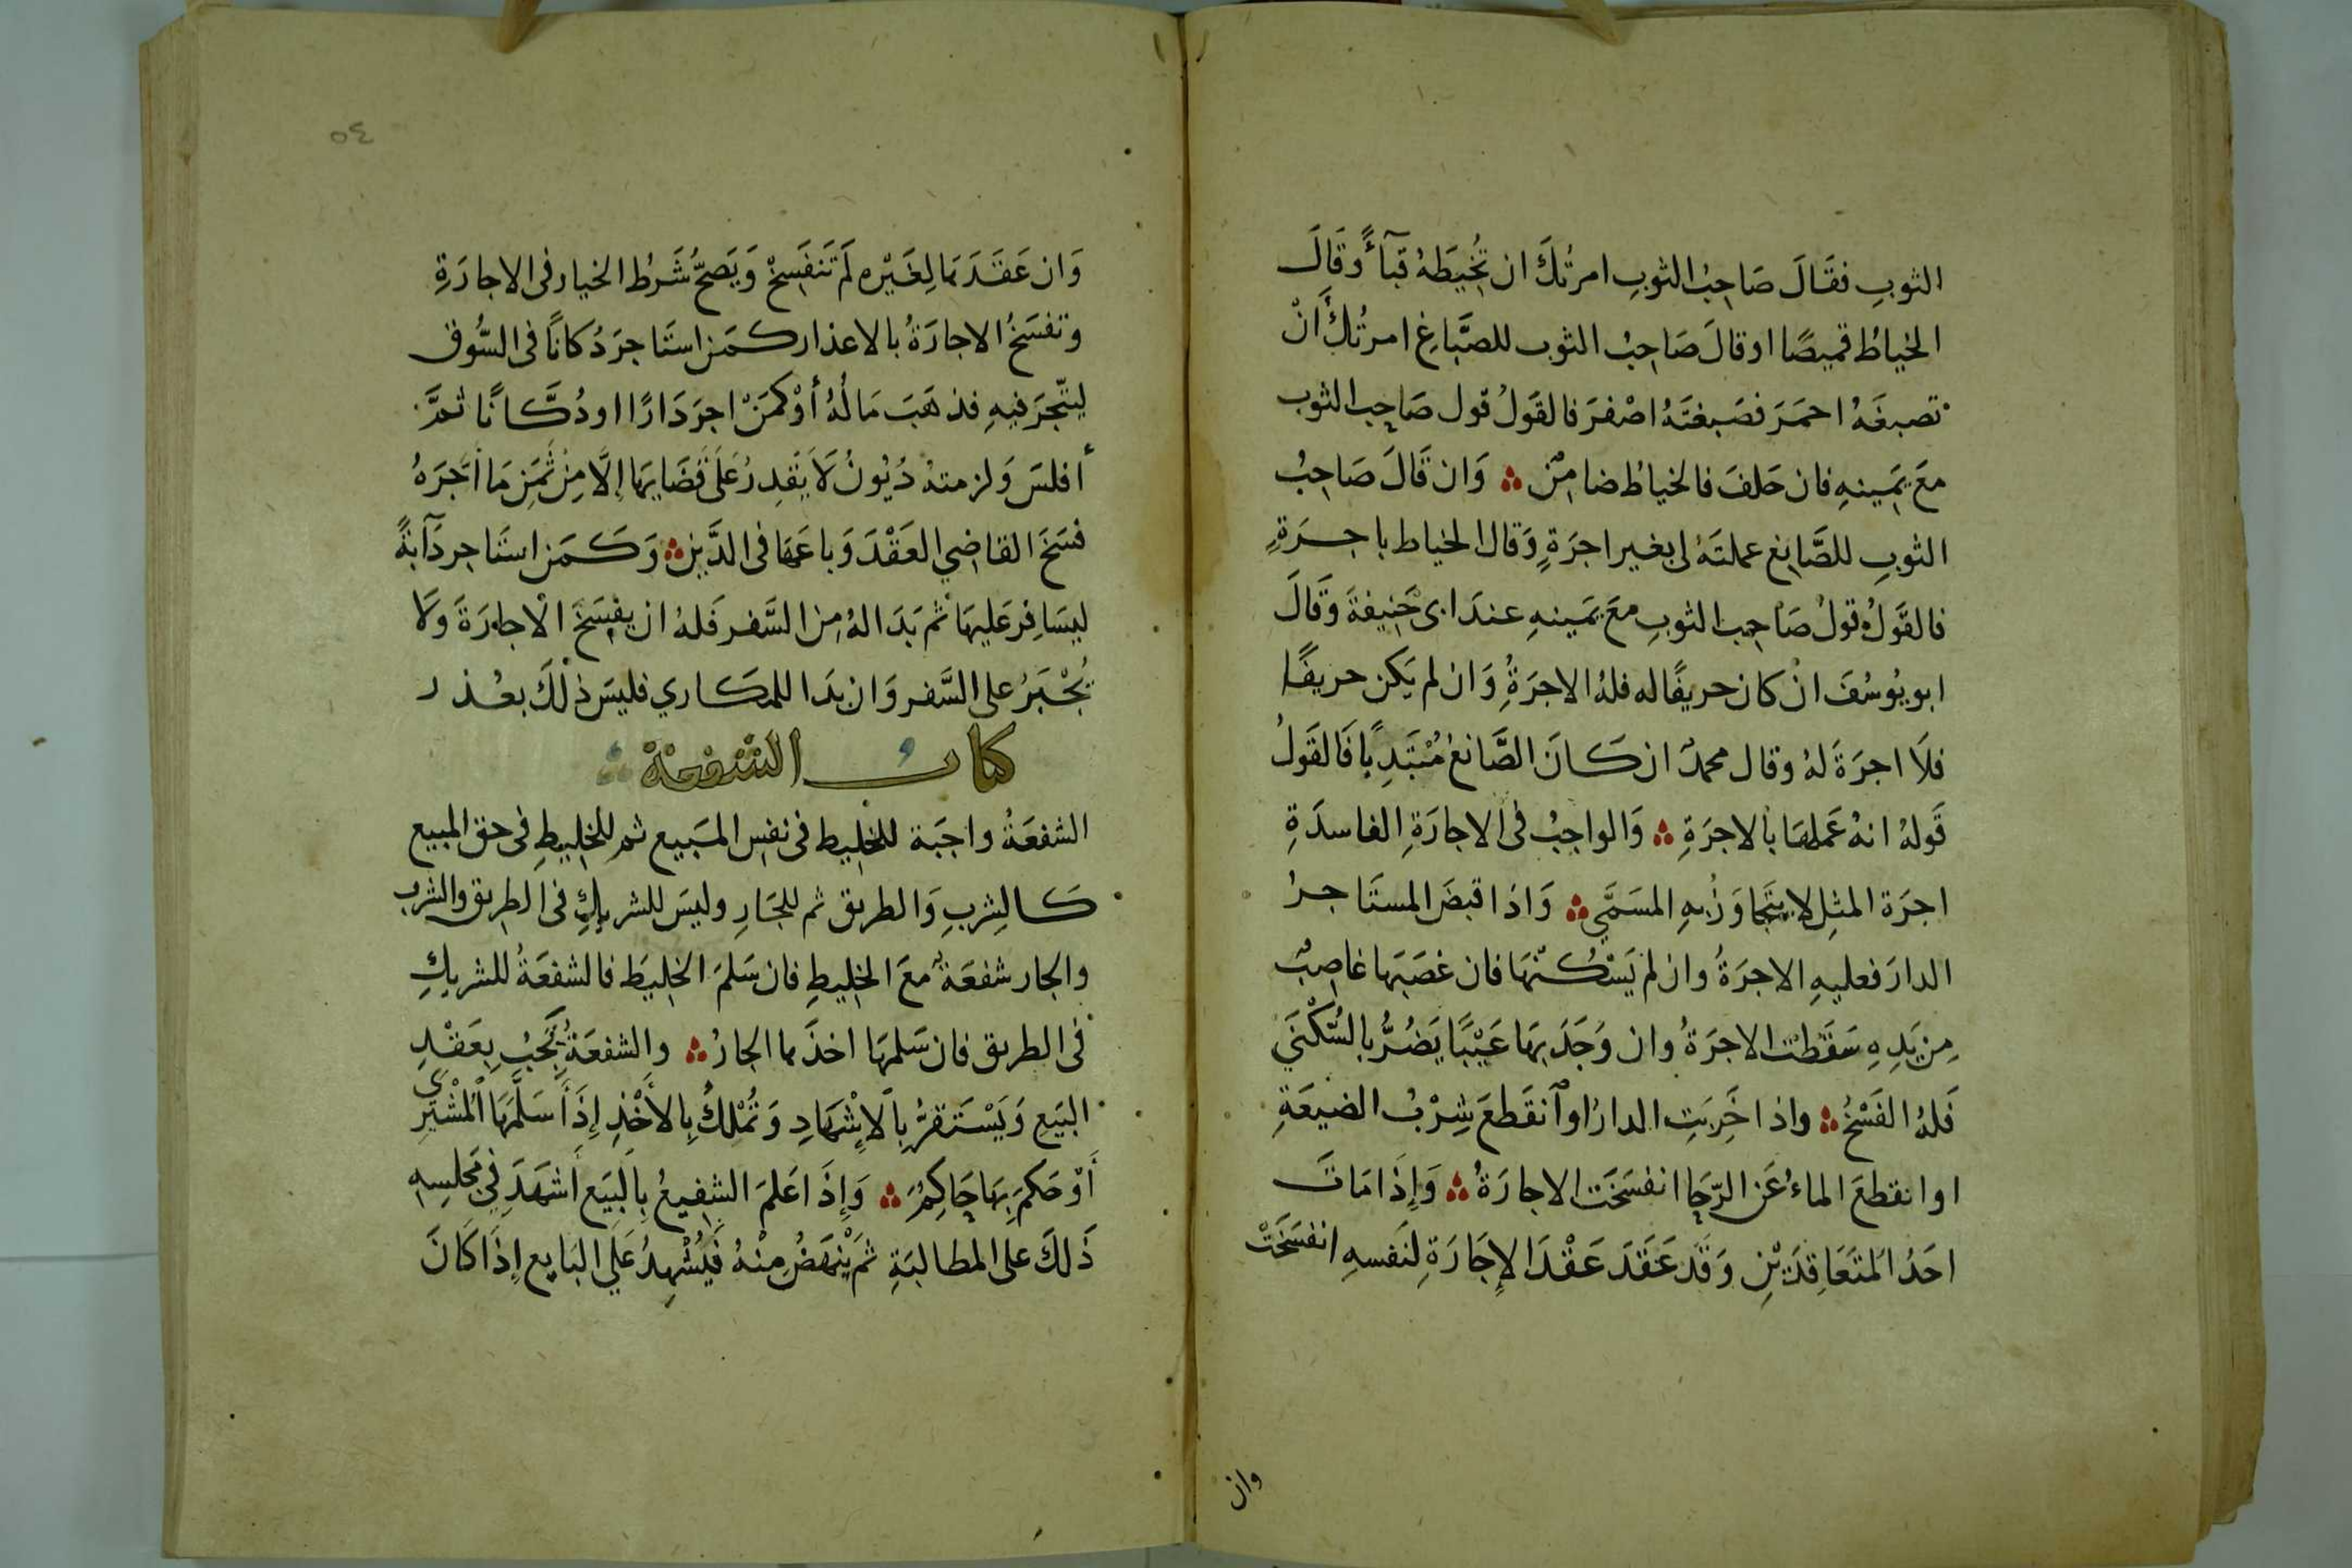 الثوبِ فقَالَ صَاحِبُ الثوبِ امرتُكَ ان تُخِيطَهُ قبآءً وقَالَ
الخياطُ قميصًا اوقالَ صَاحِبُ الثوب للصَّبَاغِ امرتُكَ أَنْ
تصبغَهُ احمَرَ فصَبغتَهُ اصْفرَ فالقَولُ قول صَاحِب الثوب
معَ يَمِينهِ فان حَلفَ فالخياطُ ضامِن ۞ وَان قَالَ صَاحِبُ
الثوبِ للصَّانِع عملتَهُ لى بغير اجرَةٍ وَقال الخياط باجرَةٍ
فالقَولُ قولُ صَاحِب الثوبِ معَ يَمينهِ عندَ ابى حَنِيفةَ وَقَالَ
ابو يُوسُفَ انْ كان حريفًا له فلهُ الاجرَةُ وَان لم يَكن حريفًا
فلَا اجرَةَ لهُ وقال محمدٌ ان كَانَ الصَّانعُ مُبْتَدِيًا فَالقَولُ
قَولهُ انهُ عَملهَا بالاجرَةِ ۞ وَالواجبُ فى الاجارَةِ الفاسدَةِ
اجرَة المثِل لا يتجَاوَزُ بهِ المسَمَّى ۞ وَاذا قبضَ المستَاجرُ
الدارَ فعليهِ الاجرَةُ وان لم يَسْكُنهَا فان غصَبَها غاصِبٌ
مِن يَدِهِ سَقَطت الاجرَةُ وان وَجَدَ بهَا عَيْبًا يَضُرُّ بالسُّكْنَي
فَلهُ الفَسْخُ ۞ واذا خَرِبَتِ الدارُ اوٱنقَطعَ شِرْبُ الضيعَةِ
او انقطعَ الماءُ عَن الرّحَا انفسَخَت الاجارَةُ ۞ وَإِذَا مَاتَ
احَدُ المتَعَاقِدَيْنِ وَقَد عَقَدَ عَقْدَ الإِجَارَةِ لِنَفسهِ انفسَخَتْ
وان
٥٤
وَان عَقَدَهَا لِغَيْرِه لَم تَنفَسِخْ وَيَصحُّ شَرْطُ الخيار فى الاجارَةِ
وتفسَخُ الاجارَةُ بالاعذار كمَن استَاجرَ دُكانًا فى السُّوق
ليتّجرَ فيهِ فذهَبَ مَالُهُ أَوْ كمَنْ اجرَ دَارًا اودُكَّانًا ثمَّ
أفلسَ وَلزمتهُ دُيُونُ لَا يَقدِرُ عَلَى قَضَايهَا إلَّا مِنْ ثَمَنِ مَا اَجَرَهُ
فسَخَ القاضِي العَقْدَ وَباعَهَا فى الدَّيْنِ ۞ وَكَمَن استَاجر دَآبةً
ليسَافِرَ عَليهَا ثُم بَدَا لهُ مِن السَّفر فَلهُ ان يفسَخَ الاجارَةَ وَلَا
يُجْبَرُ على السَّفر وَان بدَا للمكَاري فليسَ ذٰلكَ بعُذر
كتابُ الشفعة
الشفعَةُ واجبَة للخَلِيط فى نفسِ المبَيع ثم للخلِيطِ فى حق المبيع
كَالشِربِ وَالطريق ثم للجَارِ وليسَ للشريكِ فى الطريق والشرب
والجار شفعَةٌ معَ الخليطِ فان سَلمَ الخليَط فالشفعَةُ للشريكِ
فى الطريق فان سَلمهَا اخذَها الجارُ ۞ والشفعَةُ تَجبُ بِعَقْدِ
البَيَعِ وَيَسْتَقرُّ بِالْإِشْهَادِ وَتُمْلكُ بِالأَخْذِ إِذَا سَلَّمَهَا الْمُشْتَرِى
أَوْ حَكمَ بِهَا حَاكِمٌ ۞ وَإِذَا عَلمَ الشفِيعُ بِالبَيَع أَشهَدَ فِي مَجلسِهِ
ذَٰلكَ على المطالبَةِ ثمَ يَنْهَضُ مِنْهُ فَيُشْهِدُ عَلَى البَايِع إِذَا كَانَ